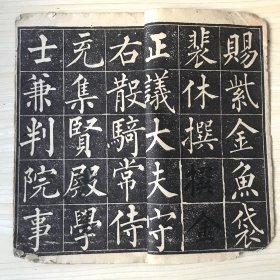 賜紫金魚袋
裴休撰
正議大夫守
右散騎常侍
充集賢殿學
士兼判院事